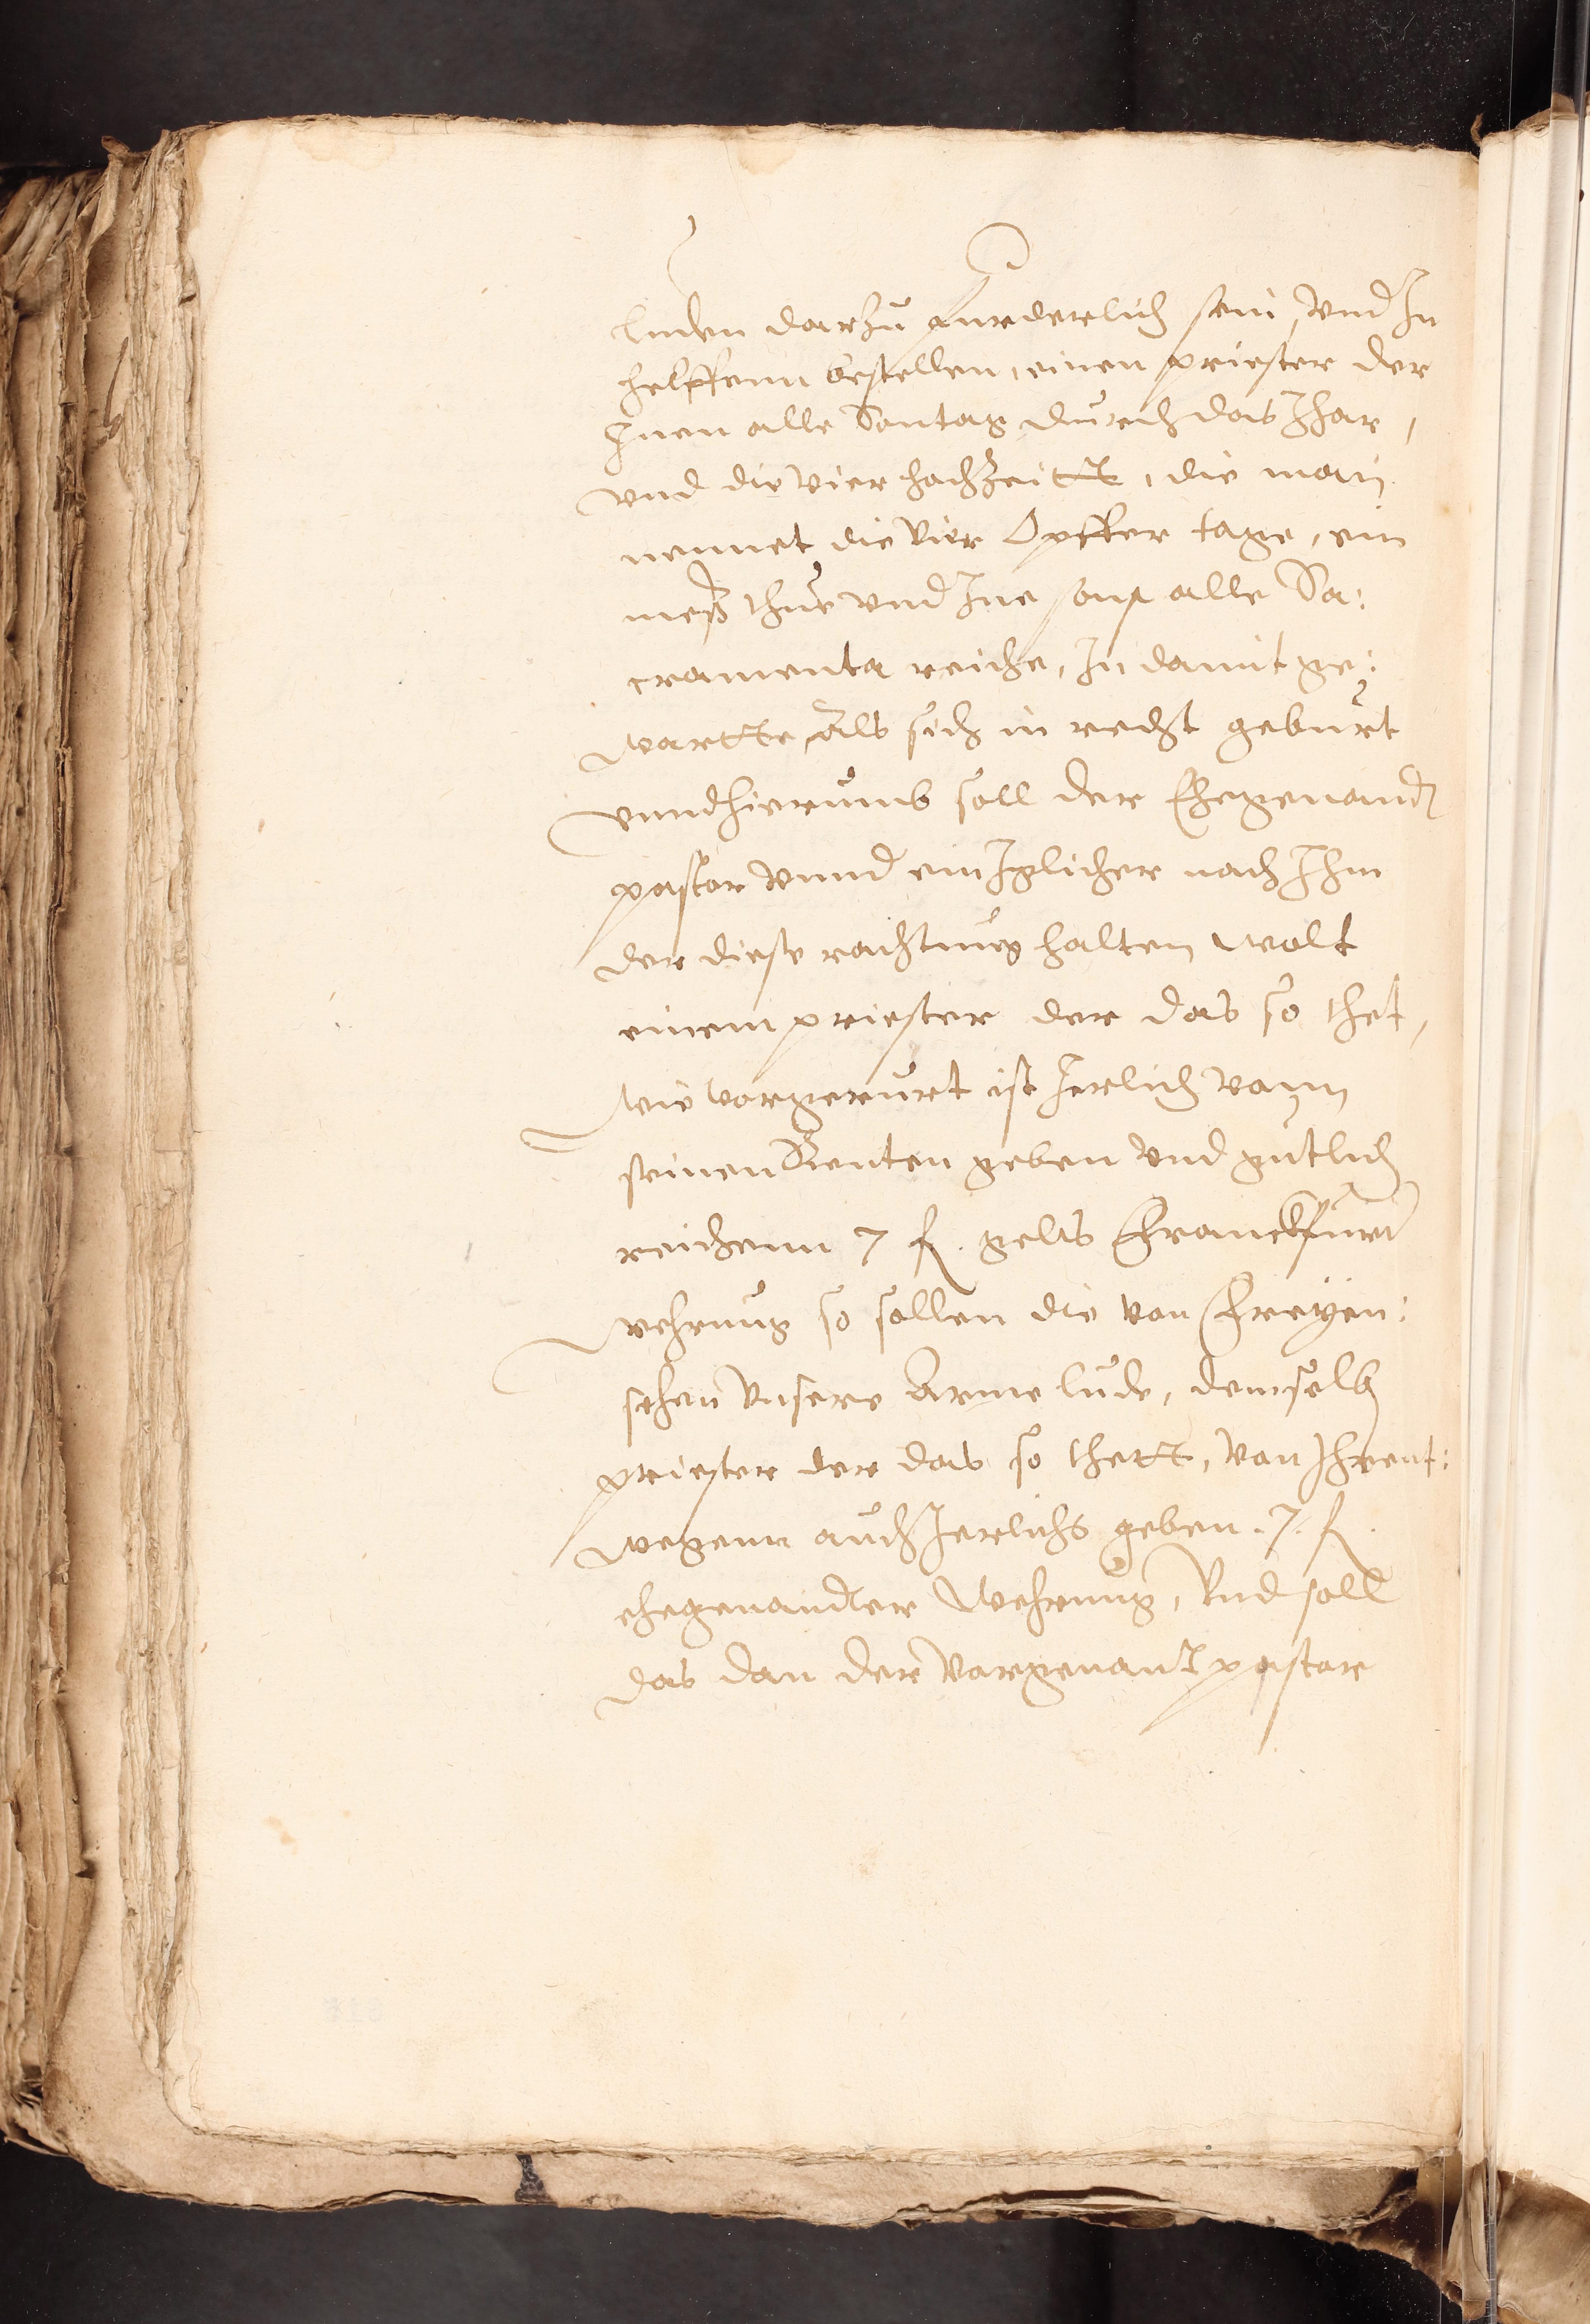 luden darzu furderlich sein, vnd In
helffenn bestellen, einen priester der
Inen alle Sontag durch das Jhar,
vnd die vier hochzeittt, die man
nennet die vier Opffer tage, ein
meß thue vnd Ine sonst alle Sa:
cramenta reiche, In damit ge:
wartte, Als sich in recht geburt
vnnd hierumb soll der Ehegenandt
pastor vnnd ein Iglicher nach Ihm
der diese rachtung halten wolt
einem priester der das so thet,
wie vorgerurt ist Jerlich vonn
seinen Renten geben vnd gutlich
reichenn 7 fl. gelts Franckfurt
wehrung so sollen die von Freyen:
sehen vnsere Arme lude, demselb
priester der das so thett, von Ihrent:
wegenn auch Jerlichs geben .7. fl.
ehegenandter Wehrung, Vnd soll
das dan der vorgenant pastor